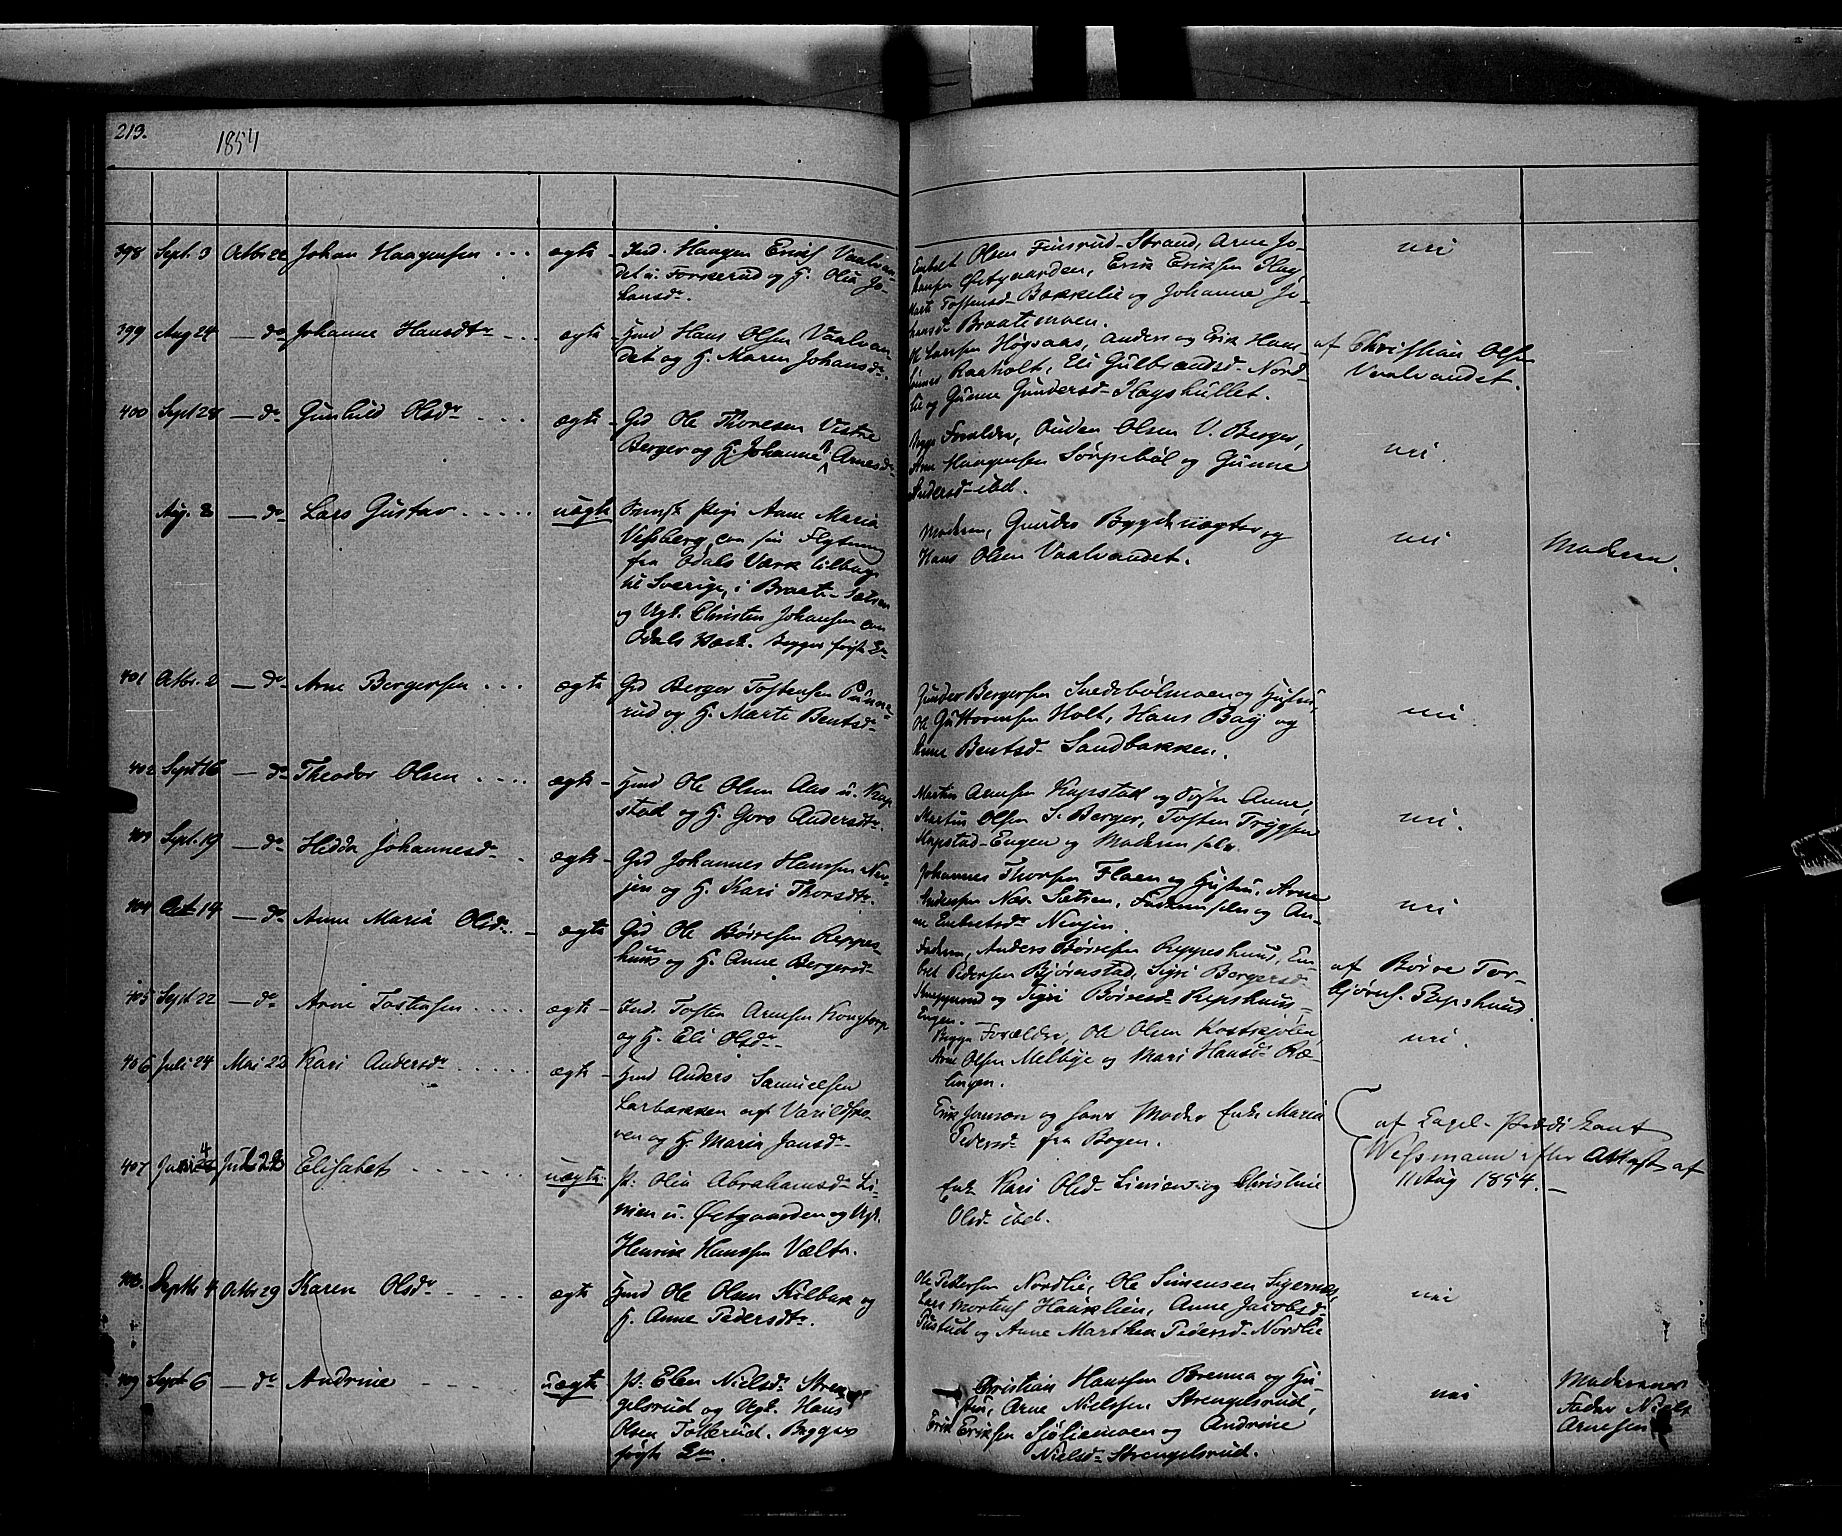 213.
1854
398 Sept. 3 Octbr 22 Johan Haagensen ... ægte - Ind. Haagen Eriks. Vaalvan-
det u. Forserud og H. Olia Jo-
hansdr.
Embret Olsen Finsrud-Strand, Arne Jo-
hansen Østgaarden, Erik Eriksen Hag,
Marte Tostensd. Bakkelie og Johanne Jo-
hansd. Braatemoen.
nei
399 Aug 24 — do Johanne Hansdtr ... ægte - Hmd Hans Olsen Vaalvan-
det og H. Maren Johansdr.
Ol Larssen Høgsaas, Anders og Erik Hans-
Raaholt, Eli Gulbrandsd. Nord-
lie og Gunne Gundersd. Hagshullet.
af Christian Olsen
Vaalvandet.
400 Sept 28 — do Gunhild Olsdr .... ægte - Grd Ole Thoresen Vestre
Berger og H. Johanne Arnesdr
Begge Forældre, Auden Olsen V. Berger,
Arne Haagensen Sørpebøl og Gunne
Andersd. ibd.
nei.
Aug. 8 — do Lars Gustav ..... uægte Svensk Pige Anne Maria
Vessberg, paa sin Flytning
fra Odals Værk tilbage
til Sverige, i Braate-Sætren
og Ugk. Christen Johansen paa
Odals Værk. Begges første Lm
Moderen, Gunder Bygdevægter og
Hans Olsen Vaalvandet.
nei
Moderen.
401 Octbr. 2 — do Arne Bergersen ... ægte Grd Berger Tostensen
rud og H. Marte Bentsdr
Gunder Bergersen Snedebølmoen og Hustru,
Ol Guttormsen Holt, Hans Bag og
Anne Bentsd. Sandbakken.
nei.
402 Sept 16 — do Theodor Olsen .... ægte - Hmd Ole Olsen Aas u. Kap-
stad og H. Goro Andersdtr.
Martin Arnesen Kapstad og Søster Anne,
Martin Olsen S. Berger, Tosten Trygsen
Kapstad-Engen og Moderen selv.
nei.
403 Sept. 19 — do Hedda Johannesdr. . ægte - Grd Johannes Hanssen Nen-
jen og H. Kari Thorsdtr.
Johannes Thorsen Flaen og Hustru, Arne
Andersen Næs-Sætren, Faderen selv og An-
ne Embretsdr Nenjen.
nei
404 Oct 14 — do Anne Maria Olsdr. . ægte Grd Ole Børresen Reppes-
huus og H. Anne Bergersd-
Faderen, Anders Børresen Reppeshuus, Em-
bret Pedersen Bjørnstad, Sigri Bergersd-
og Sigri Børresd. Repshuus-
Engen.
af Børre Tor-
bjørns. Repshuus.
405 Sept. 22 — do Arne Tostensen .... ægte - Ind. Tosten Arnesen Kongtorp
og H. Eli Olsdr.
Begge Forældre, Ole Olsen Kostkjølen,
Arne Olsen Melbye og Mari Hansdr Ræ-
lingen.
nei.
406 Juli 24 Mai 22 Kari Andersdr ..... ægte - Hmd Anders Samuelsen
Larbakken
og H. Maria Jansdr
Erik Jonsson og hans Moder Enke Maria
Pedersd. fra Bogen.
af Capel-Prædikant
Wessmann efter Attest af
11 Aug 1854.
407 Juli 22 Elisabet ...... uægte. P. Olia Abrahamsd.
u. Østgaarden og Ugk.
Henrik Hanssen Vælta.
Enke Kari Olsd. og Christine
Olsd. ibd.
408. Septbr 4 Octbr 29 Karen Olsdr ..... ægte Hmd Ole Olsen Kilbak og
H. Anne Pedersdtr.
Ole Pedersen Nordlie, Ole Simensen Sigernæs,
Lars Mortens Haukelien, Anne Jacobsd-
og Anne Marthea Pedersd. Nordlie
nei
409 Sept 6 — do Andrine ..... uægte P. Elen Nielsdr Stren-
gelsrud og Ugk. Hans
Olsen Tollerud. Begges
første Lm.
Christian Hanssen Brenna og Hu-
stru, Arne Nielssen Strengelsrud,
Erik Eriksen Sjøliemoen og Andrine
Nielsd. Strengelsrud.
nei
Moderens
Fader Niels
Arnesen